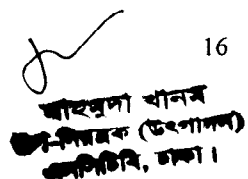 16
মাহমুদা খানম
উপ-নিয়ন্ত্রক (উৎপাদন)
এনসিটিবি, ঢাকা।